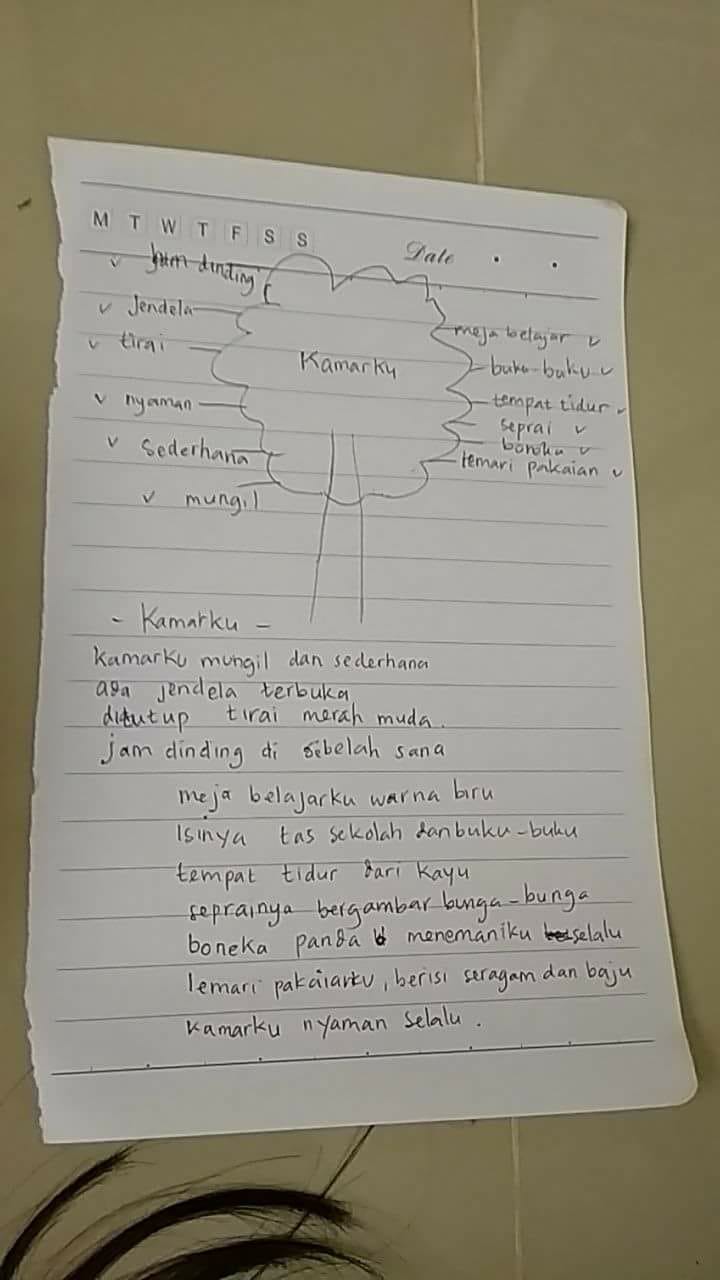 M T W T F S S
Date
✓ jam dinding
✓ Jendela
✓ tirai
✓ nyaman
✓ Sederhana
✓ mungil
Kamarku
meja belajar ✓
buku-buku ✓
tempat tidur ✓
seprai ✓
boneka ✓
lemari pakaian ✓
- Kamarku -
Kamarku mungil dan sederhana
ada jendela terbuka
ditutup tirai merah muda.
jam dinding di sebelah sana
meja belajarku warna biru
Isinya tas sekolah dan buku-buku
tempat tidur dari kayu
seprainya bergambar bunga-bunga
boneka panda menemaniku selalu
lemari pakaianku, berisi seragam dan baju
Kamarku nyaman selalu.